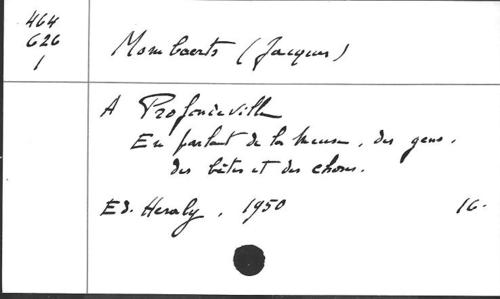 464
626
1
Mombaerts (Jacques)
A Profondeville
En parlant de la Meuse, des gens,
des bêtes et des choses.
Ed. Heraly, 1950 16-